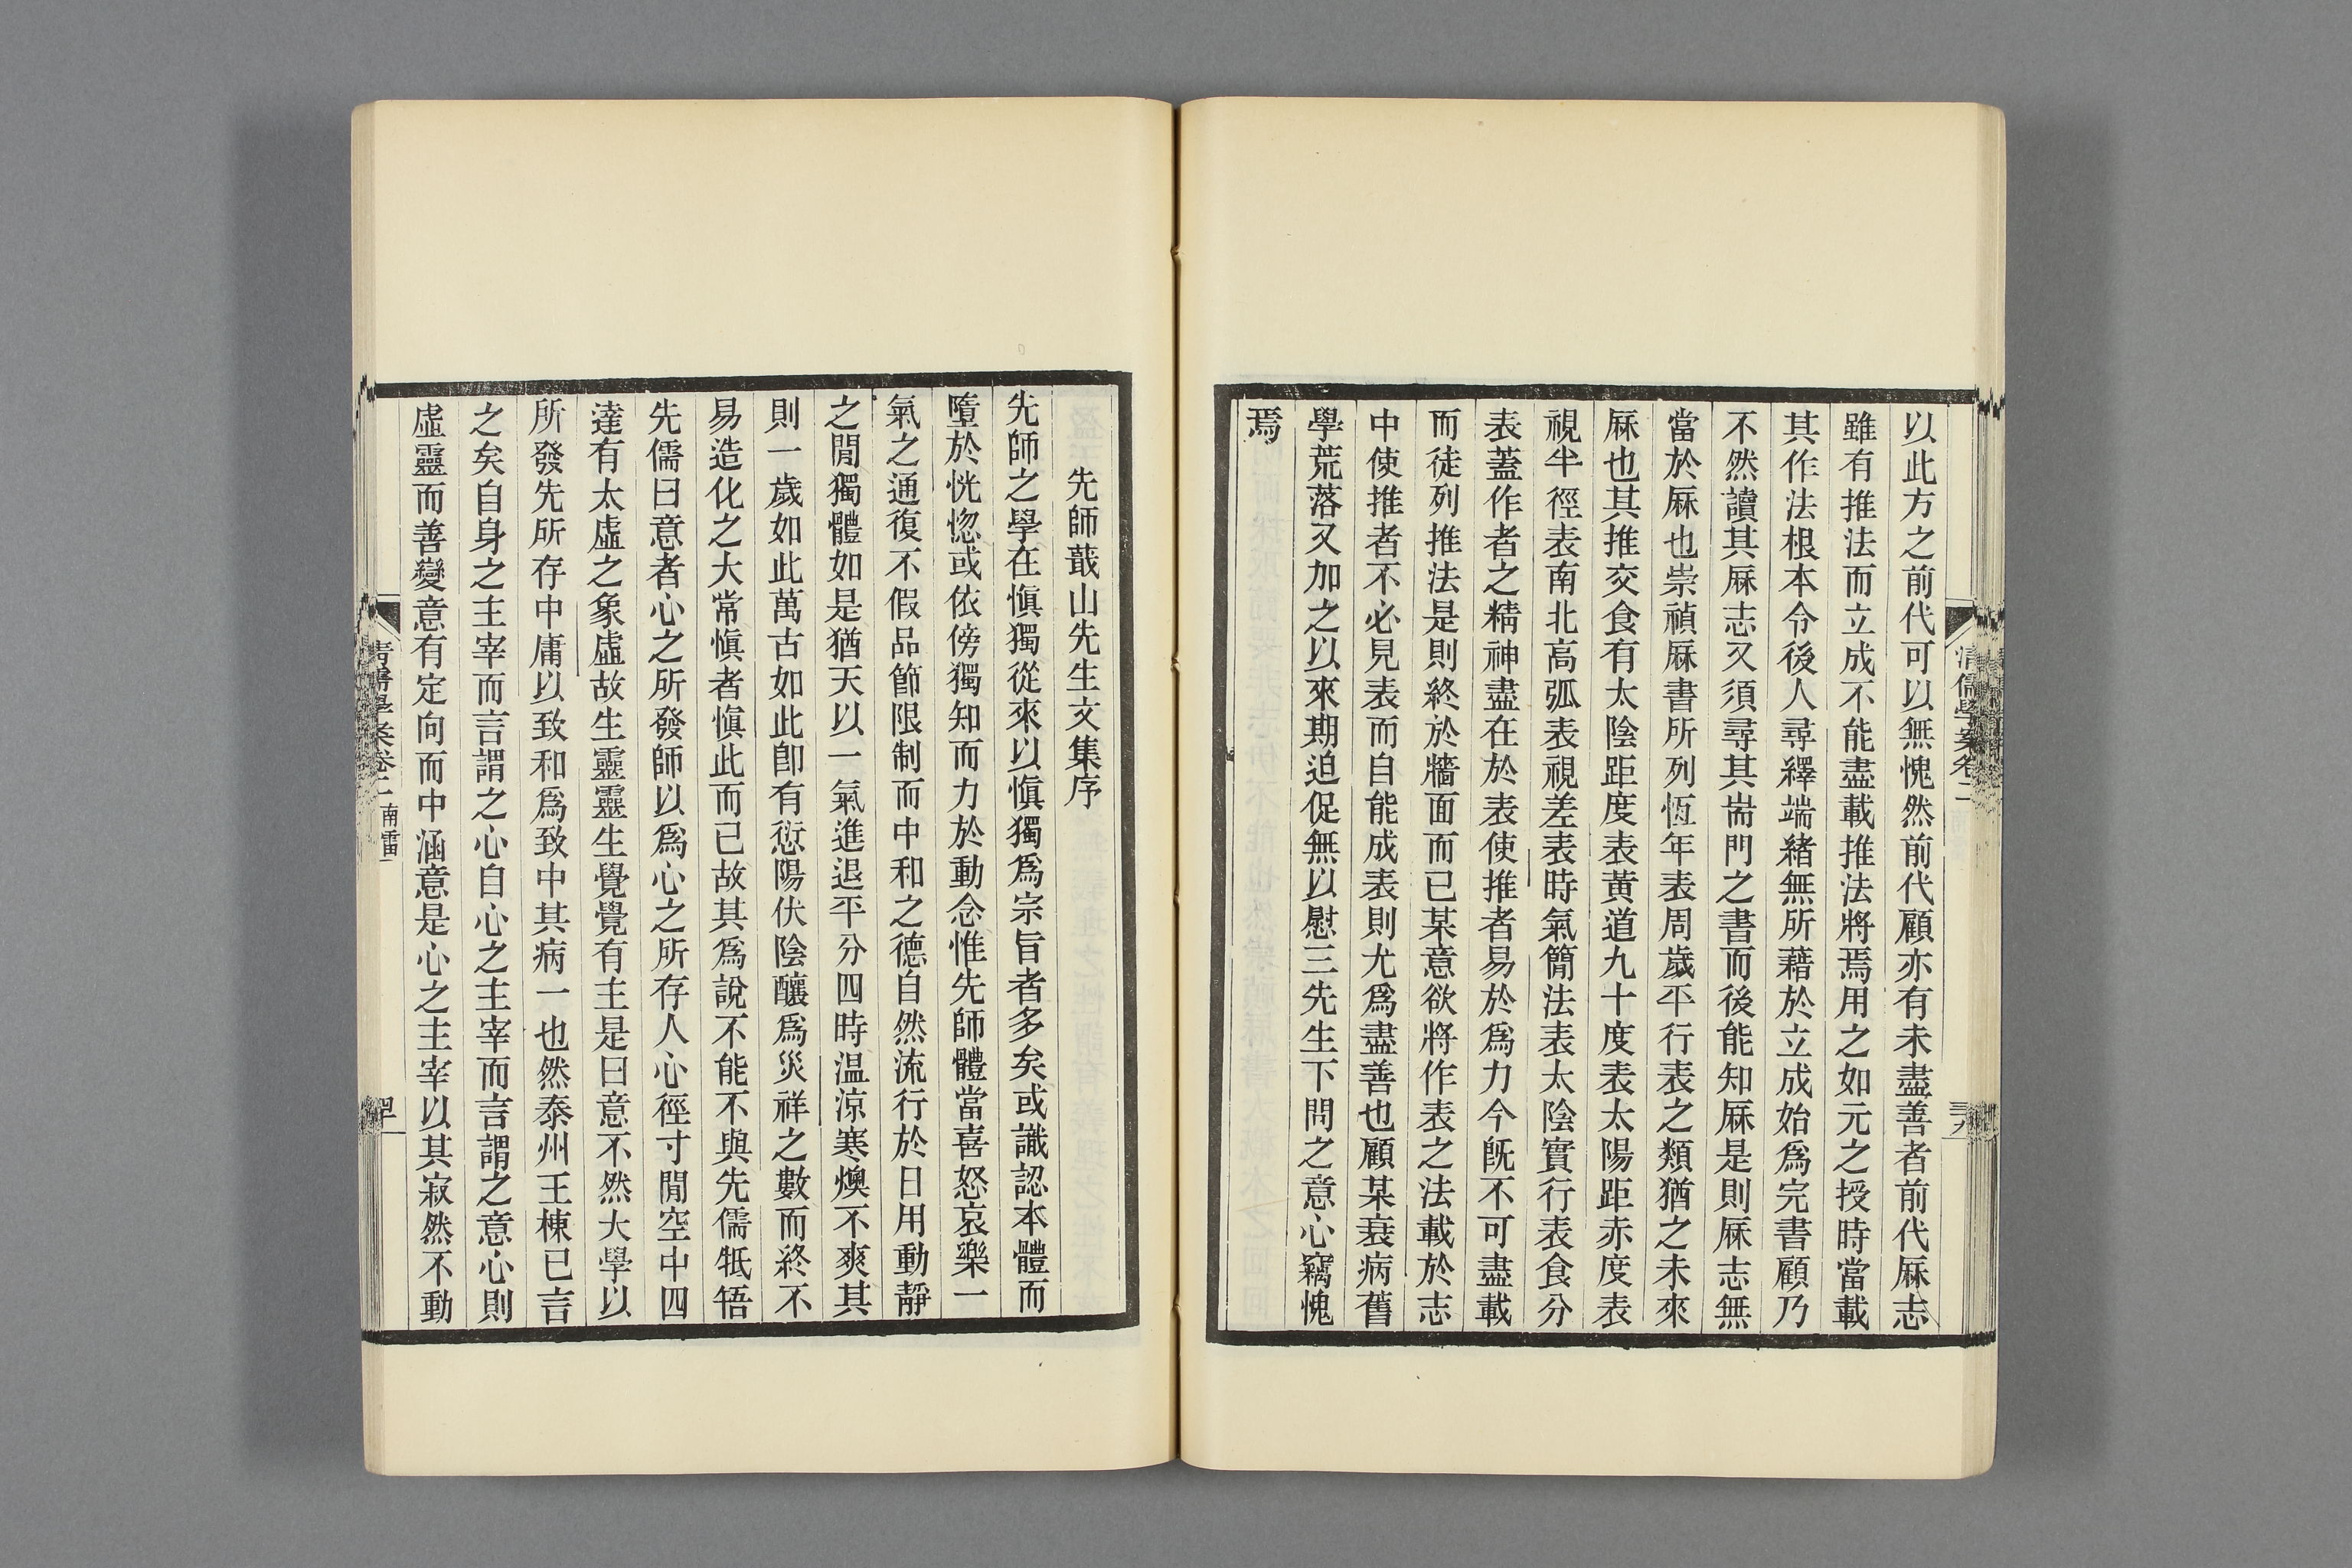 清儒學案卷二
以此方之前代可以無愧然前代顧亦有未盡善者前代厤志
雖有推法而立成不能盡載推法將焉用之如元之授時當載
其作法根本令後人尋繹端緒無所藉於立成始爲完書顧乃
不然讀其厤志又須尋其耑門之書而後能知厤是則厤志無
當於厤也崇禎厤書所列恆年表周歲平行表之類猶之未來
厤也其推交食有太陰距度表黃道九十度表太陽距赤度表
視半徑表南北高弧表視差表時氣簡法表太陰實行表食分
表蓋作者之精神盡在於表使推者易於爲力今旣不可盡載
而徒列推法是則終於牆面而已某意欲將作表之法載於志
中使推者不必見表而自能成表則尤爲盡善也顧某衰病舊
學荒落又加之以來期迫促無以慰三先生下問之意心竊愧
焉
先師蕺山先生文集序
先師之學在愼獨從來以愼獨爲宗旨者多矣或識認本體而
墮於恍惚或依傍獨知而力於動念惟先師體當喜怒哀樂一
氣之通復不假品節限制而中和之德自然流行於日用動靜
之閒獨體如是猶天以一氣進退平分四時温涼寒燠不爽其
則一歲如此萬古如此卽有愆陽伏陰釀爲災祥之數而終不
易造化之大常愼者愼此而已故其爲說不能不與先儒牴牾
先儒曰意者心之所發師以爲心之所存人心徑寸閒空中四
達有太虛之象虛故生靈靈生覺覺有主是曰意不然大學以
所發先所存中庸以致和爲致中其病一也然泰州王棟已言
之矣自身之主宰而言謂之心自心之主宰而言謂之意心則
虛靈而善變意有定向而中涵意是心之主宰以其寂然不動
清儒學案卷二 南雷一